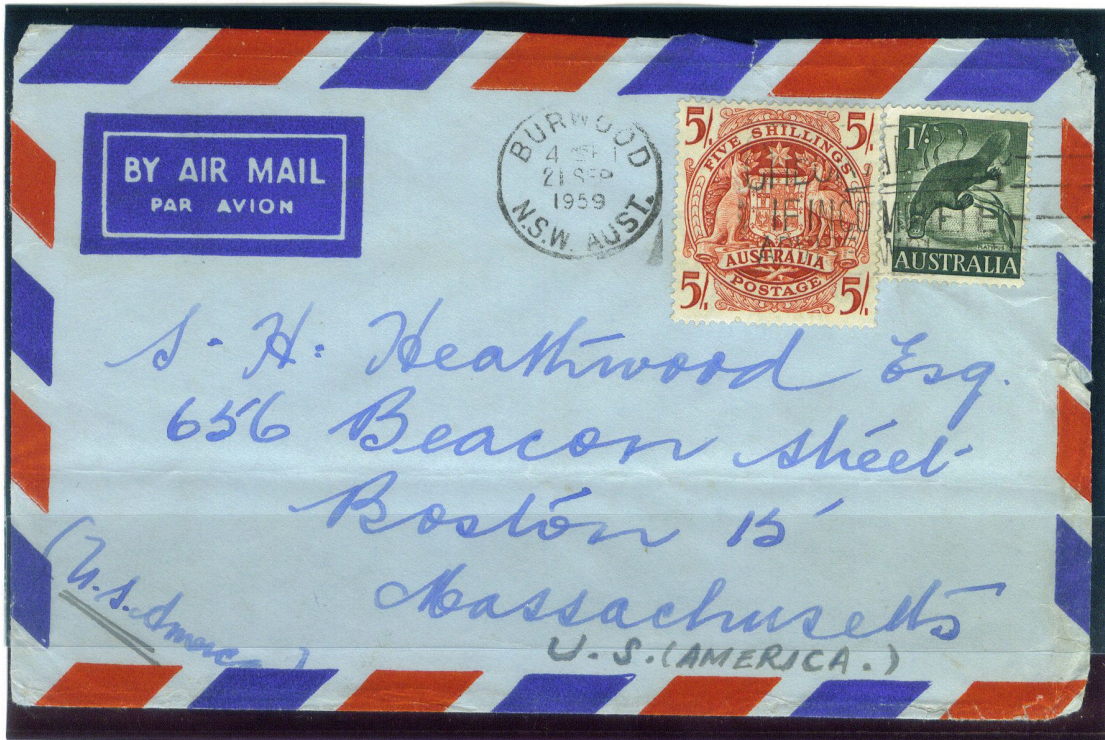 BY AIR MAIL
PAR AVION
BURWOOD
21 SEP
1959
N.S.W. AUST.
5/. 5/.
FIVE SHILLINGS
AUSTRALIA
POSTAGE
5/. 5/.
1/.
AUSTRALIA
IF INCO
S. H. Heathwood Esq.
656 Beacon Street
Boston 15
Massachusetts
(U.S. America)
U.S. (AMERICA.)